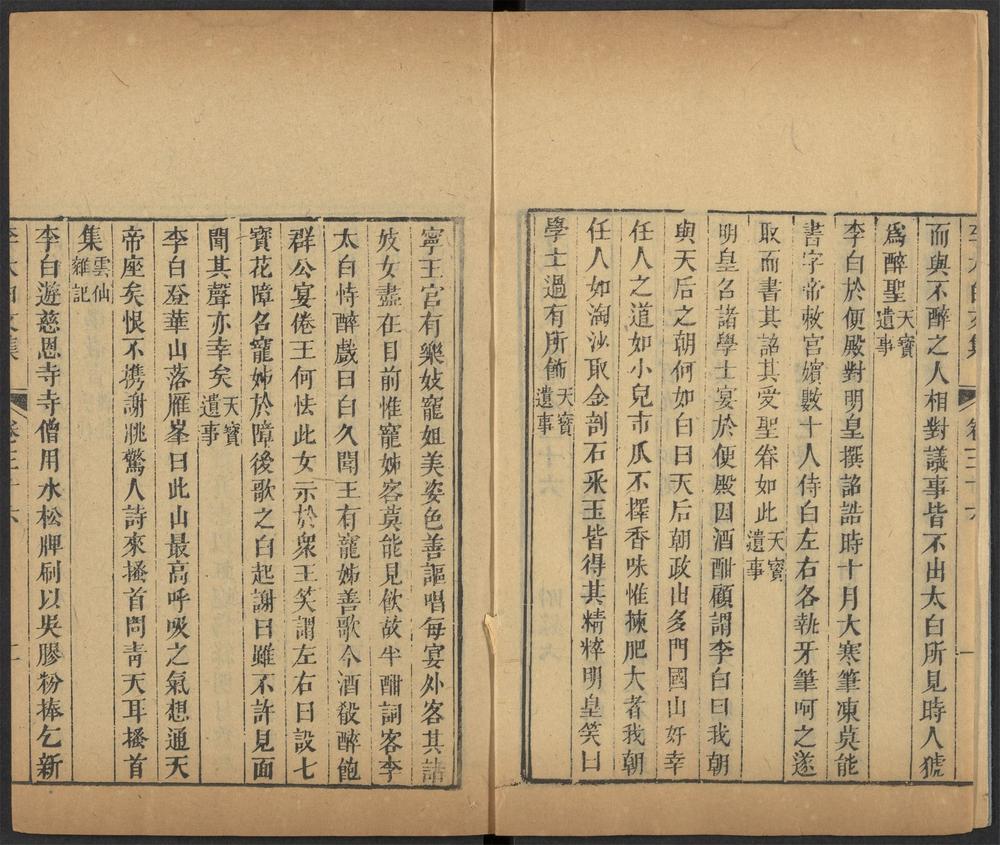 而與不醉之人相對議事皆不出太白所見時人號
爲醉聖天寶遺事
李白於便殿對明皇撰詔誥時十月大寒筆凍莫能
書字帝敕宮嬪數十人侍白左右各執牙筆呵之遂
取而書其詔其受聖眷如此天寶遺事
明皇召諸學士宴於便殿因酒酣顧謂李白曰我朝
與天后之朝何如白曰天后朝政出多門國由奸幸
任人之道如小兒市瓜不擇香味惟揀肥大者我朝
任人如淘沙取金剖石采玉皆得其精粹明皇笑曰
學士過有所飾天寶遺事
寧王宮有樂妓寵姐美姿色善謳唱每宴外客其諸
妓女盡在目前惟寵姊客莫能見飲故半酣詞客李
太白恃醉戲曰白久聞王有寵姊善歌今酒殽醉飽
群公宴倦王何怯此女示於衆王笑謂左右曰設七
寶花障名寵姊於障後歌之白起謝曰雖不許見面
聞其聲亦幸矣天寶遺事
李白登華山落雁峯曰此山最高呼吸之氣想通天
帝座矣恨不攜謝朓驚人詩來搔首問青天耳搔首
集雲仙雜記
李白遊慈恩寺寺僧用水松牌刷以吳膠粉捧乞新
李太白文集
卷三十六
二